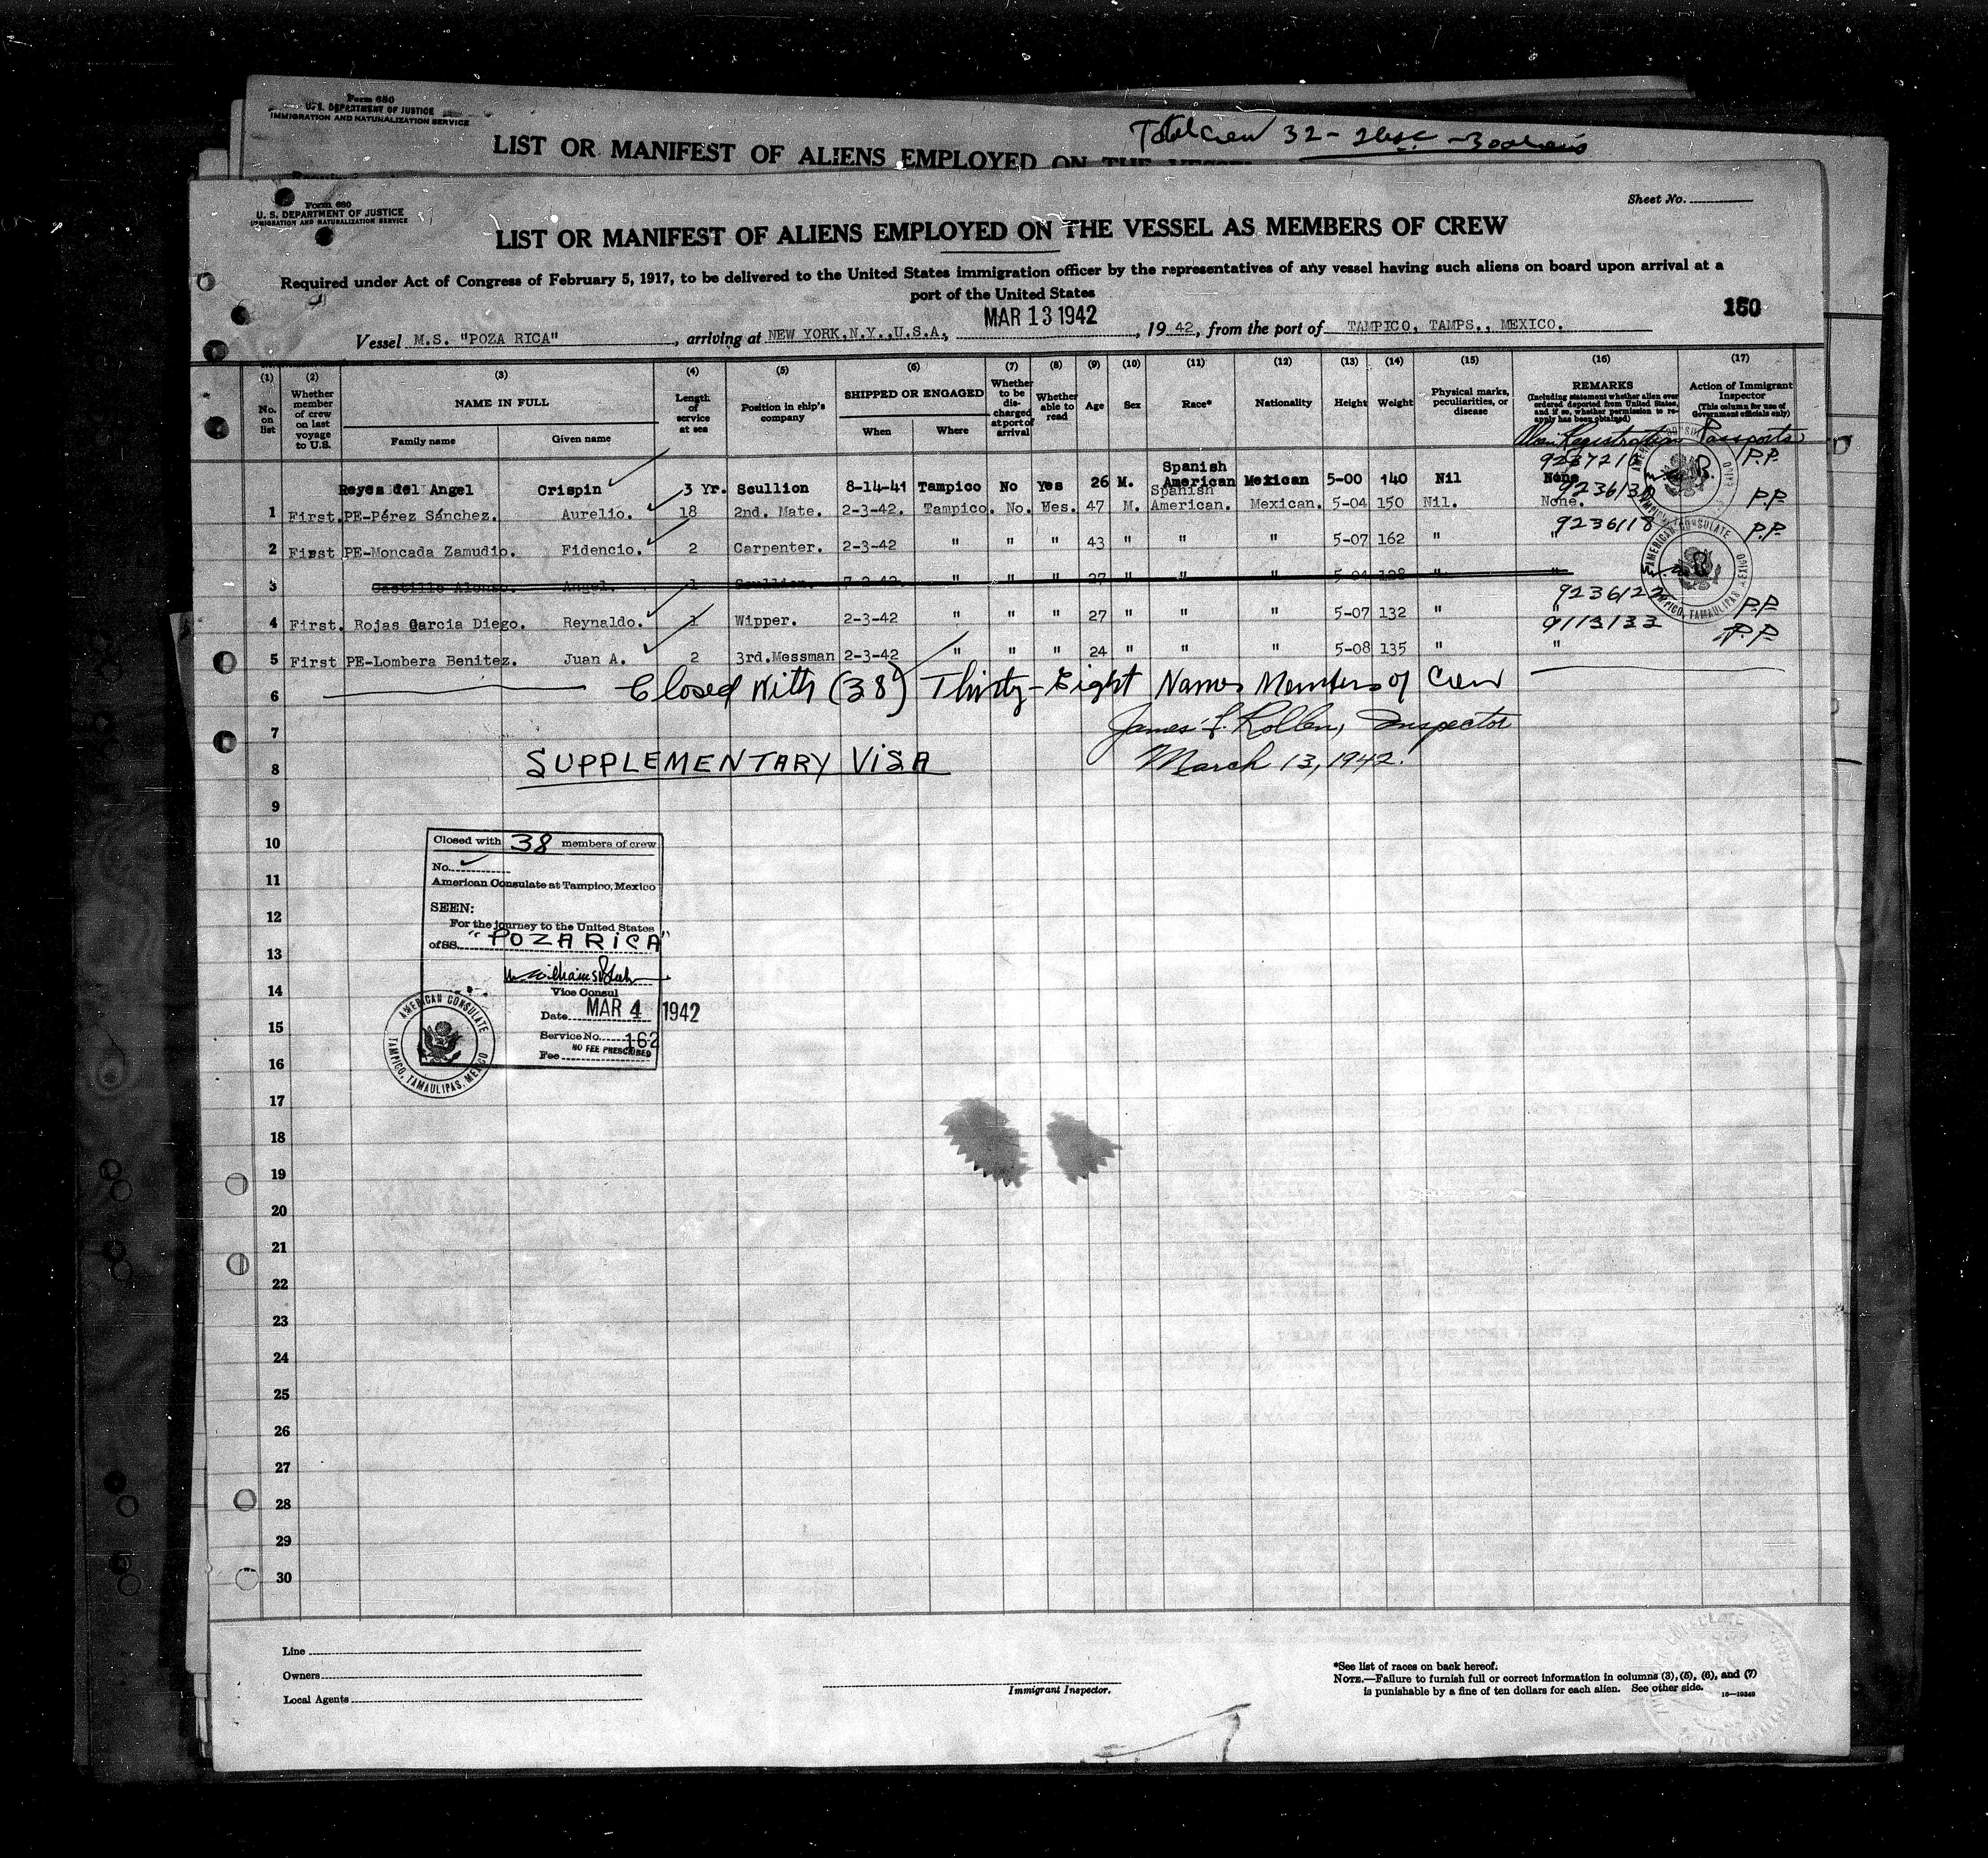 Form 680
U. S. DEPARTMENT OF JUSTICE
IMMIGRATION AND NATURALIZATION SERVICE
Total Crew 32 -
LIST OR MANIFEST OF ALIENS EMPLOYED ON THE VESSEL
Form 680
U. S. DEPARTMENT OF JUSTICE
IMMIGRATION AND NATURALIZATION SERVICE
Sheet No.
LIST OR MANIFEST OF ALIENS EMPLOYED ON THE VESSEL AS MEMBERS OF CREW
Required under Act of Congress of February 5, 1917, to be delivered to the United States immigration officer by the representatives of any vessel having such aliens on board upon arrival at a
port of the United States
150
MAR 13 1942
Vessel M.S. "POZA RICA", arriving at NEW YORK.N.Y.,U.S.A., , 1942, from the port of TAMPICO, TAMPS., MEXICO.
(1) (2) (3) (4) (5) (6) (7) (8) (9) (10) (11) (12) (13) (14) (15) (16) (17)
No. on list
Whether member of crew on last voyage to U.S.
NAME IN FULL
Family name Given name
Length of service at sea
Position in ship's company
SHIPPED OR ENGAGED
When Where
Whether to be discharged at port of arrival
Whether able to read
Age Sex Race* Nationality Height Weight
Physical marks, peculiarities, or disease
REMARKS
(Including statement whether alien ever ordered deported from United States, and if so, whether permission to reapply has been obtained)
Action of Immigrant Inspector
(This column for use of Government officials only)
Alien Registration Passports
Reyes del Angel Crispin 3 Yr. Scullion 8-14-41 Tampico No Yes 26 M. Spanish American Mexican 5-00 140 Nil None P.P.
1 First. PE-Pérez Sánchez. Aurelio. 18 2nd. Mate. 2-3-42. Tampico. No. Yes. 47 M. Spanish American. Mexican. 5-04 150 Nil. None. P.P.
2 First PE-Moncada Zamudio. Fidencio. 2 Carpenter. 2-3-42 " " " 43 " " " 5-07 162 " " 9236118 P.P.
3 Castillo Alonso. Angel. 1 Scullion. " " " 27 " " " "
4 First. Rojas Garcia Diego. Reynaldo. 1 Wipper. 2-3-42 " " " 27 " " " 5-07 132 " " P.P.
5 First PE-Lombera Benitez. Juan A. 2 3rd.Messman 2-3-42 " " " 24 " " " 5-08 135 " " 9113133 P.P.
6 Closed With (38) Thirty-Eight Names Members of Crew
7 James Inspector
8 SUPPLEMENTARY VISA March 13, 1942.
9
10
11
12
13
14
15
16
17
18
19
20
21
22
23
24
25
26
27
28
29
30
Closed with 38 members of crew
No.
American Consulate at Tampico, Mexico
SEEN:
For the journey to the United States
of SS. "POZA RICA"
Vice Consul
Date MAR 4 1942
Service No. 162
Fee NO FEE PRESCRIBED
AMERICAN CONSULATE
TAMPICO, TAMAULIPAS, MEXICO
AMERICAN CONSULATE
TAMPICO, TAMAULIPAS, MEXICO
Line
Owners
Local Agents
Immigrant Inspector.
*See list of races on back hereof.
NOTE.—Failure to furnish full or correct information in columns (3), (5), (6), and (7)
is punishable by a fine of ten dollars for each alien. See other side.
16—19349